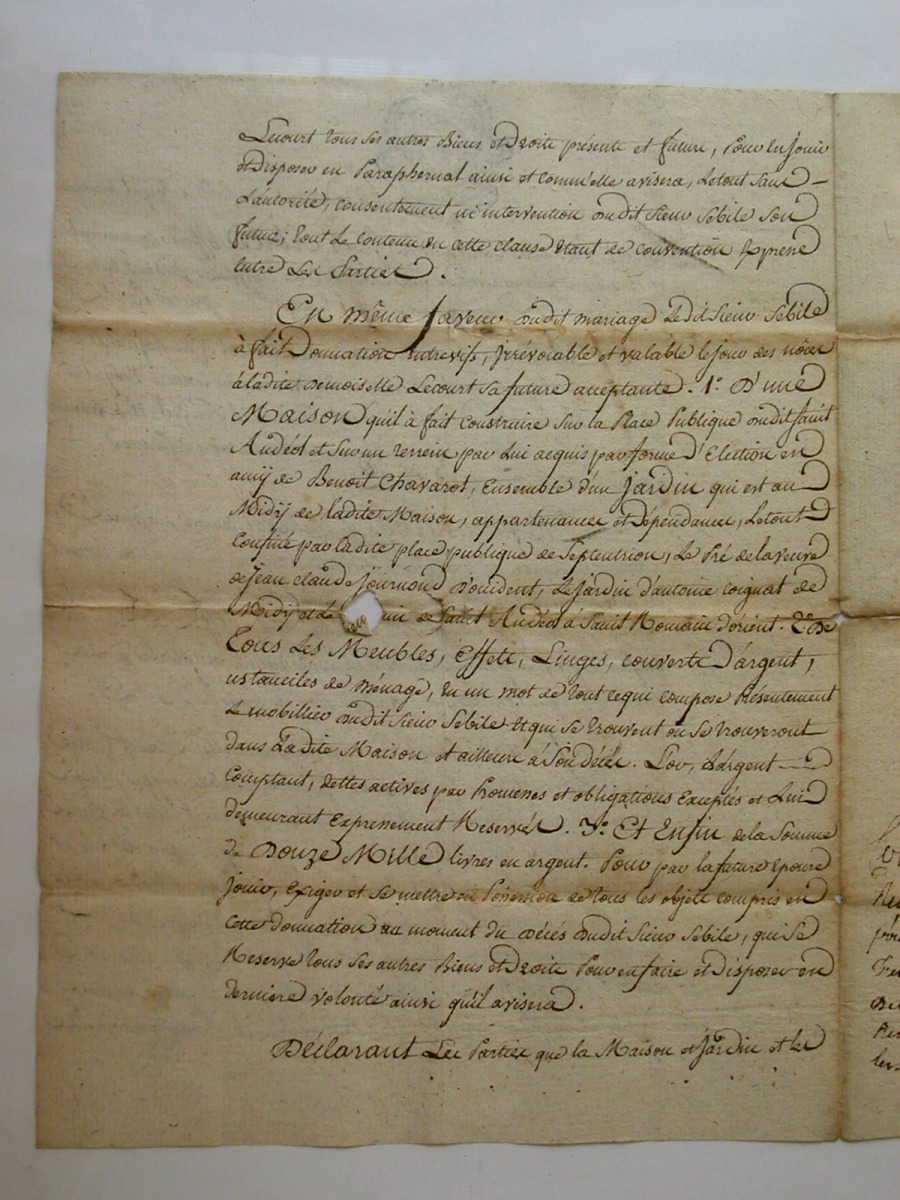 Lecourt tous ses autres Biens et Droits présents et futurs, Pour en jouir
et Disposer en Paraphernal ainsi et comm'elle avisera, Le tout sans
L'autorité, consentement ni intervention dudit sieur Sebile Son
futur; tout Le contenu en cette clause étant de convention Expresse
entre Les Parties.
En même faveur dudit mariage Ledit Sieur Sebile
à fait Donnation entrevifs, jrrévocable et valable le jour des nôces
à ladite Demoiselle Lecourt Sa future acceptante. 1° D'une
Maison qu'il à fait construire Sur la Place Publique dudit saint
Andéol et Sur un terrein par Lui acquis par forme d'Election en
amij de Benoit Chavarot, Ensemble d'un Jardin qui est au
Midij de ladite Maison, appartenances et Dépendances, Le tout
Confiné par ladite place publique de Septentrion, Le Pré de la veuve
de Jean claude Journoud d'occident, Le jardin d'antoine coignat de
Midij et Le de Saint Andéol à Saint Romain d'orient. 2° De
Tous Les Meubles, Effets, Linges, couverts D'argent,
ustanciles de ménage, En un mot de tout ce qui compose Présentement
Le mobillier dudit Sieur Sebile Et qui se trouvent ou Se trouveront
dans Ladite Maison et ailleurs à Son décès. L'or, L'argent
Comptant, dettes actives par Promesses et obligations Exceptés et Lui
demeurant Expressement Reservés. 3° Et Enfin de la Somme
de Douze Mille livres en argent. Pour par la future Epouse
jouir, Exiger et Se mettre en Possession de tous les objets compris en
Cette donnation au moment du Décés dudit Sieur Sebile, qui Se
Reserve tous Ses autres Biens et Droits Pour en faire et Disposer en
derniere volonté ainsi qu'il avisera.
Déclarant Les Parties que la Maison et jardin et les